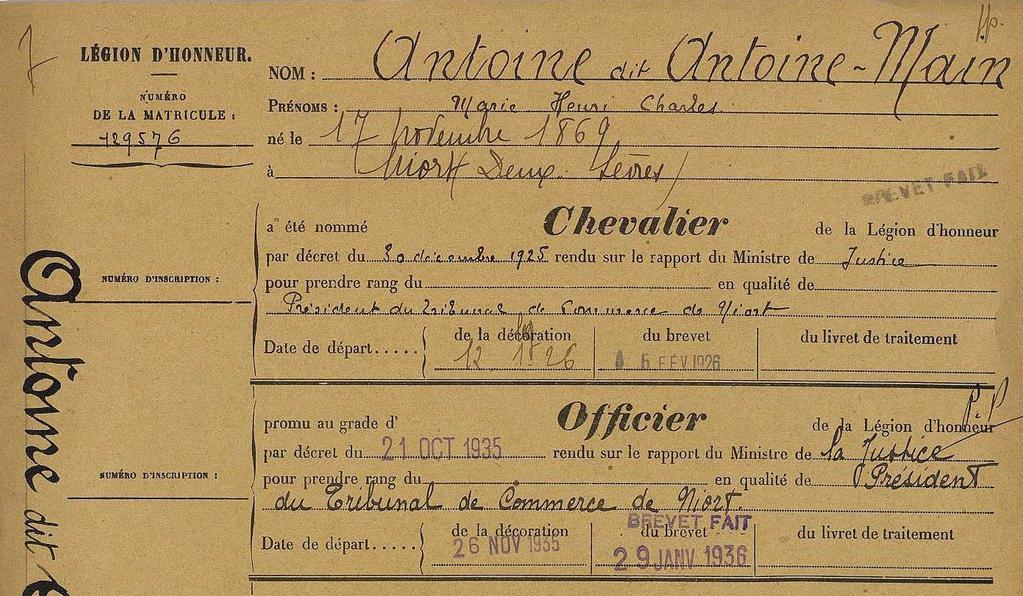 LÉGION D'HONNEUR.
NUMÉRO
DE LA MATRICULE :
129576
NOM : Antoine dit Antoine-Main
PRÉNOMS : Marie Henri Charles
né le 17 novembre 1869
à Niort Deux-Sèvres)
BREVET FAIT
a été nommé Chevalier de la Légion d'honneur
par décret du 30 décembre 1925 rendu sur le rapport du Ministre de Justice
NUMÉRO D'INSCRIPTION :
pour prendre rang du en qualité de
Président du Tribunal de Commerce de Niort
Date de départ..... de la décoration du brevet du livret de traitement
12 26 5 FÉV 1926
promu au grade d' Officier de la Légion d'honneur
P.P
par décret du 21 OCT 1935 rendu sur le rapport du Ministre de la Justice
NUMÉRO D'INSCRIPTION :
pour prendre rang du en qualité de Président
du Tribunal de Commerce de Niort.
BREVET FAIT
Date de départ..... de la décoration du brevet du livret de traitement
26 NOV 1935 29 JANV 1936
Antoine dit